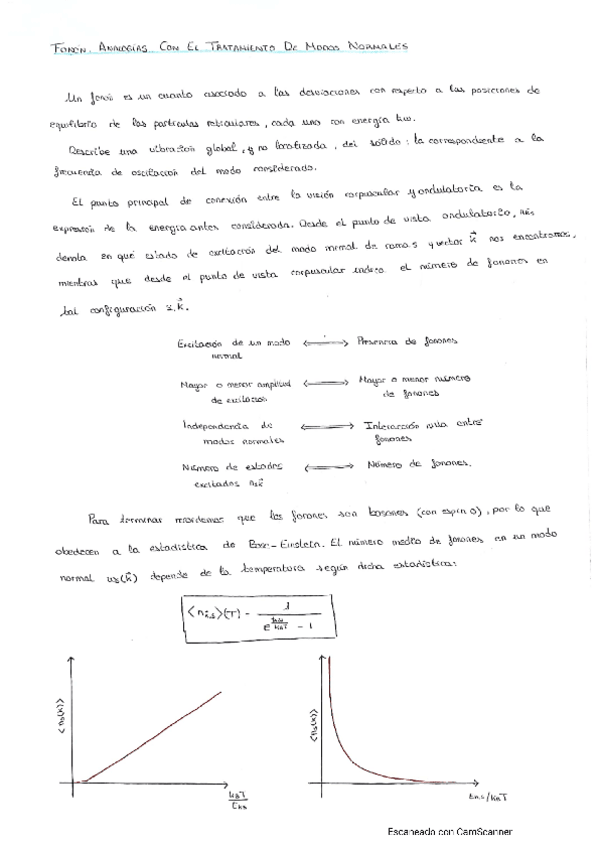 FONÓN. ANALOGÍAS CON EL TRATAMIENTO DE MODOS NORMALES
Un fonón es un cuanto asociado a las desviaciones con respecto a las posiciones de
equilibrio de las partículas reticulares, cada uno con energía ħω.
Describe una vibración global, y no localizada, del sólido: la correspondiente a la
frecuencia de oscilación del modo considerado.
El punto principal de conexión entre la visión corpuscular y ondulatoria es la
expresión de la energía antes considerada. Desde el punto de vista ondulatorio, nₖₛ
denota en qué estado de excitación del modo normal de rama s y vector k⃗ nos encontramos,
mientras que desde el punto de vista corpuscular indica el número de fonones en
tal configuración s, k⃗.
Excitación de un modo ⟷ Presencia de fonones
normal
Mayor o menor amplitud ⟷ Mayor o menor número
de excitación de fonones
Independencia de ⟷ Interacción nula entre
modos normales fonones
Número de estados ⟷ Número de fonones.
excitados nₛk⃗
Para terminar recordemos que los fonones son bosones (con espín 0), por lo que
obedecen a la estadística de Bose-Einstein. El número medio de fonones en un modo
normal ωs(k⃗) depende de la temperatura según dicha estadística:
⟨nₖ,ₛ⟩(T) = 1 / (e^(ħω/k_BT) - 1)
⟨ns(k)⟩
k_BT / εₖₛ
⟨ns(k)⟩
εₖ,ₛ/k_BT
Escaneado con CamScanner